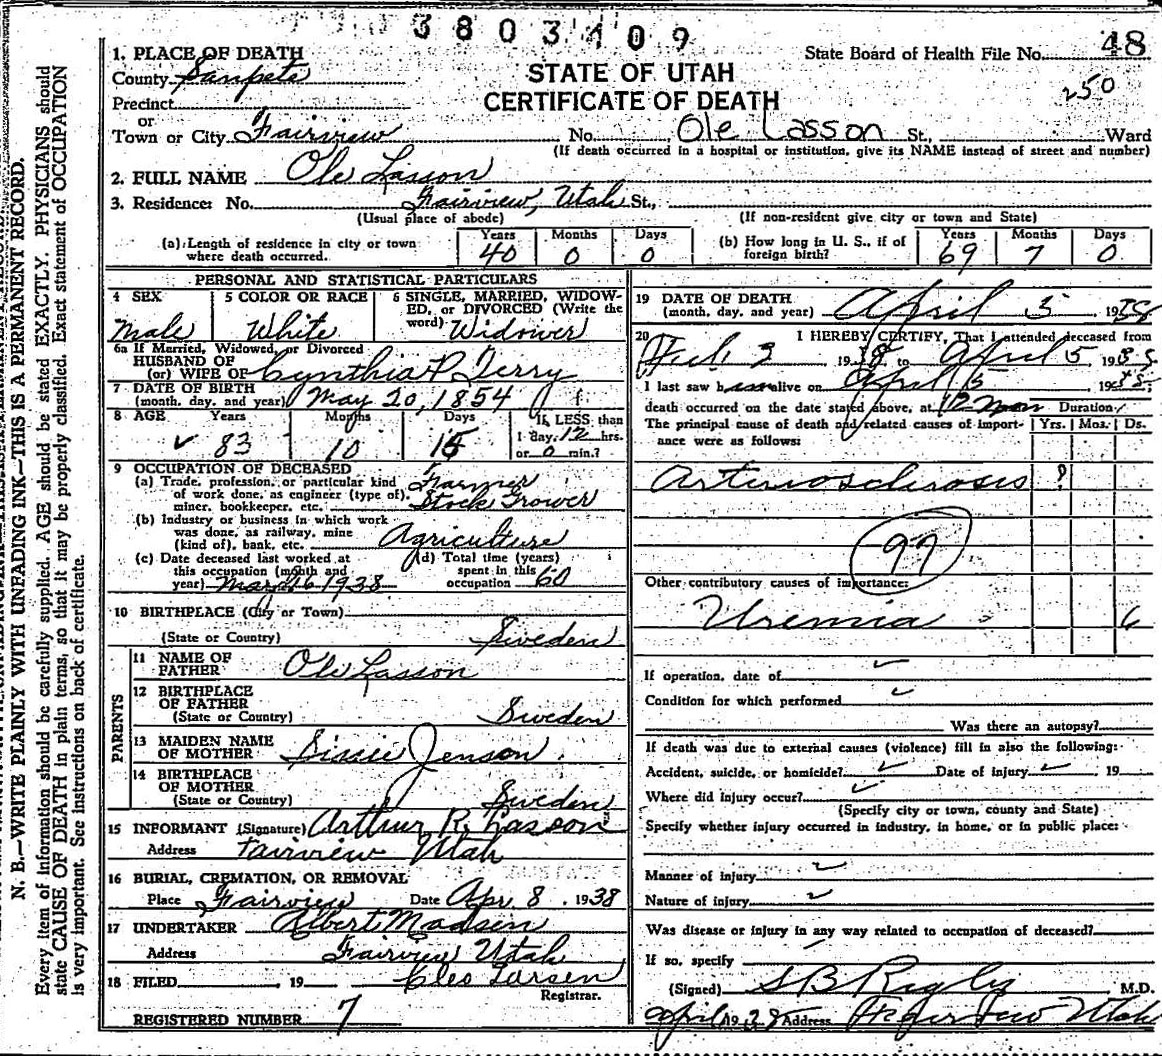 3803109
1. PLACE OF DEATH
State Board of Health File No. 48
County Sanpete
STATE OF UTAH
250
Precinct
CERTIFICATE OF DEATH
or
Town or City Fairview No. Ole Lasson St., Ward
(If death occurred in a hospital or institution, give its NAME instead of street and number)
2. FULL NAME Ole Lasson
3. Residence: No. Fairview, Utah St.,
(Usual place of abode) (If non-resident give city or town and State)
(a) Length of residence in city or town where death occurred. Years 40 Months 0 Days 0
(b) How long in U. S., if of foreign birth? Years 69 Months 7 Days 0
PERSONAL AND STATISTICAL PARTICULARS
4 SEX Male
5 COLOR OR RACE White
6 SINGLE, MARRIED, WIDOWED, OR DIVORCED (Write the word) Widower
6a If Married, Widowed, or Divorced
HUSBAND OF
(or) WIFE OF Cynthia P Terry
7 DATE OF BIRTH
(month, day, and year) May 20, 1854
8 AGE Years 83 Months 10 Days 15 If LESS than
1 day, 12 hrs.
or 0 min.?
9 OCCUPATION OF DECEASED
(a) Trade, profession, or particular kind Farmer
of work done, as engineer (type of), Stock Grower
miner, bookkeeper, etc.
(b) Industry or business in which work
was done, as railway, mine Agriculture
(kind of), bank, etc.
(c) Date deceased last worked at
this occupation (month and
year) 1938
(d) Total time (years)
spent in this
occupation 60
10 BIRTHPLACE (City or Town)
(State or Country) Sweden
PARENTS
11 NAME OF
FATHER Ole Lasson
12 BIRTHPLACE
OF FATHER
(State or Country) Sweden
13 MAIDEN NAME
OF MOTHER Sissie Jenson
14 BIRTHPLACE
OF MOTHER
(State or Country) Sweden
15 INFORMANT (Signature) Arthur R. Lasson
Address Fairview Utah
16 BURIAL, CREMATION, OR REMOVAL
Place Fairview Date Apr. 8, 1938
17 UNDERTAKER Albert Madsen
Address Fairview Utah
18 FILED 19 Cleo Larsen
Registrar.
REGISTERED NUMBER 7
19 DATE OF DEATH
(month, day, and year) April 5 1938
20 I HEREBY CERTIFY, That I attended deceased from
Feb 3 1938 to April 5 1938
I last saw him alive on April 5 1938
death occurred on the date stated above, at 12 Duration
The principal cause of death and related causes of importance were as follows: Yrs. Mos. Ds.
Arteriosclerosis ?
97
Other contributory causes of importance:
Uremia 6
If operation, date of
Condition for which performed
Was there an autopsy?
If death was due to external causes (violence) fill in also the following:
Accident, suicide, or homicide? Date of injury 19
Where did injury occur?
(Specify city or town, county and State)
Specify whether injury occurred in industry, in home, or in public place:
Manner of injury
Nature of injury
Was disease or injury in any way related to occupation of deceased?
If so, specify
(Signed) S B Rigby M.D.
April 1938 Address Fairview Utah
N. B.—WRITE PLAINLY WITH UNFADING INK—THIS IS A PERMANENT RECORD.
Every item of information should be carefully supplied. AGE should be stated EXACTLY. PHYSICIANS should
state CAUSE OF DEATH in plain terms, so that it may be properly classified. Exact statement of OCCUPATION
is very important. See instructions on back of certificate.